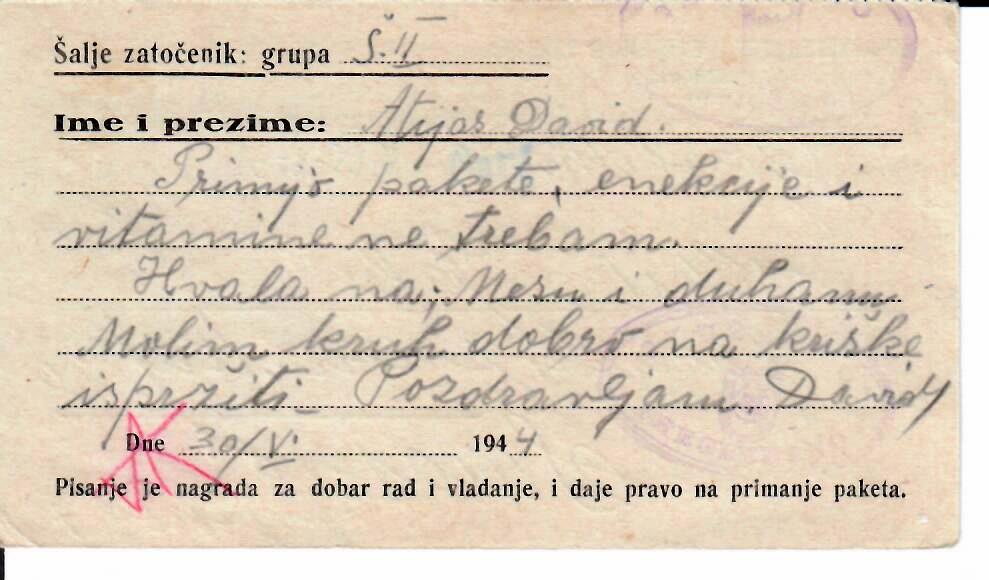 Šalje zatočenik: grupa Š.II
Ime i prezime: Atijas David.
Primijo pakete, enekcije i
vitamine ne trebam.
Hvala na; Mesu i duhanu
Molim kruh dobro na kriške
ispržiti. Pozdravljam. David
Dne 30/V. 1944
Pisanje je nagrada za dobar rad i vladanje, i daje pravo na primanje paketa.